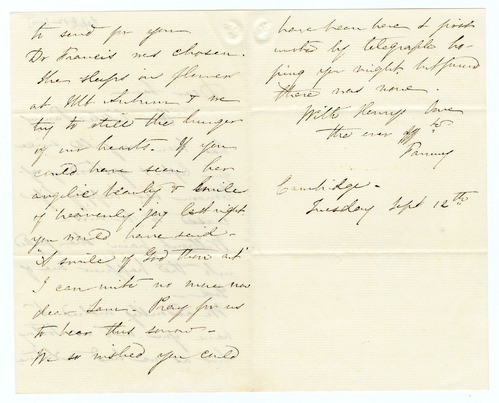 to send for you
Dr Francis was chosen.
She sleeps in flowers
at Mt Auburn & we
try to still the hunger
of our hearts. If you
could have seen her
angelic beauty & smile
of heavenly joy last night
you would have said -
"A smile of God thou art"
I can write no more now
dear Sam - Pray for us
to bear this sorrow -
We so wished you could
have been here & prom-
ised by telegraph ho-
ping you might, but found
there was none.
With Henry's love
the ever aff te
Fanny
Cambridge -
Tuesday Sept 12th